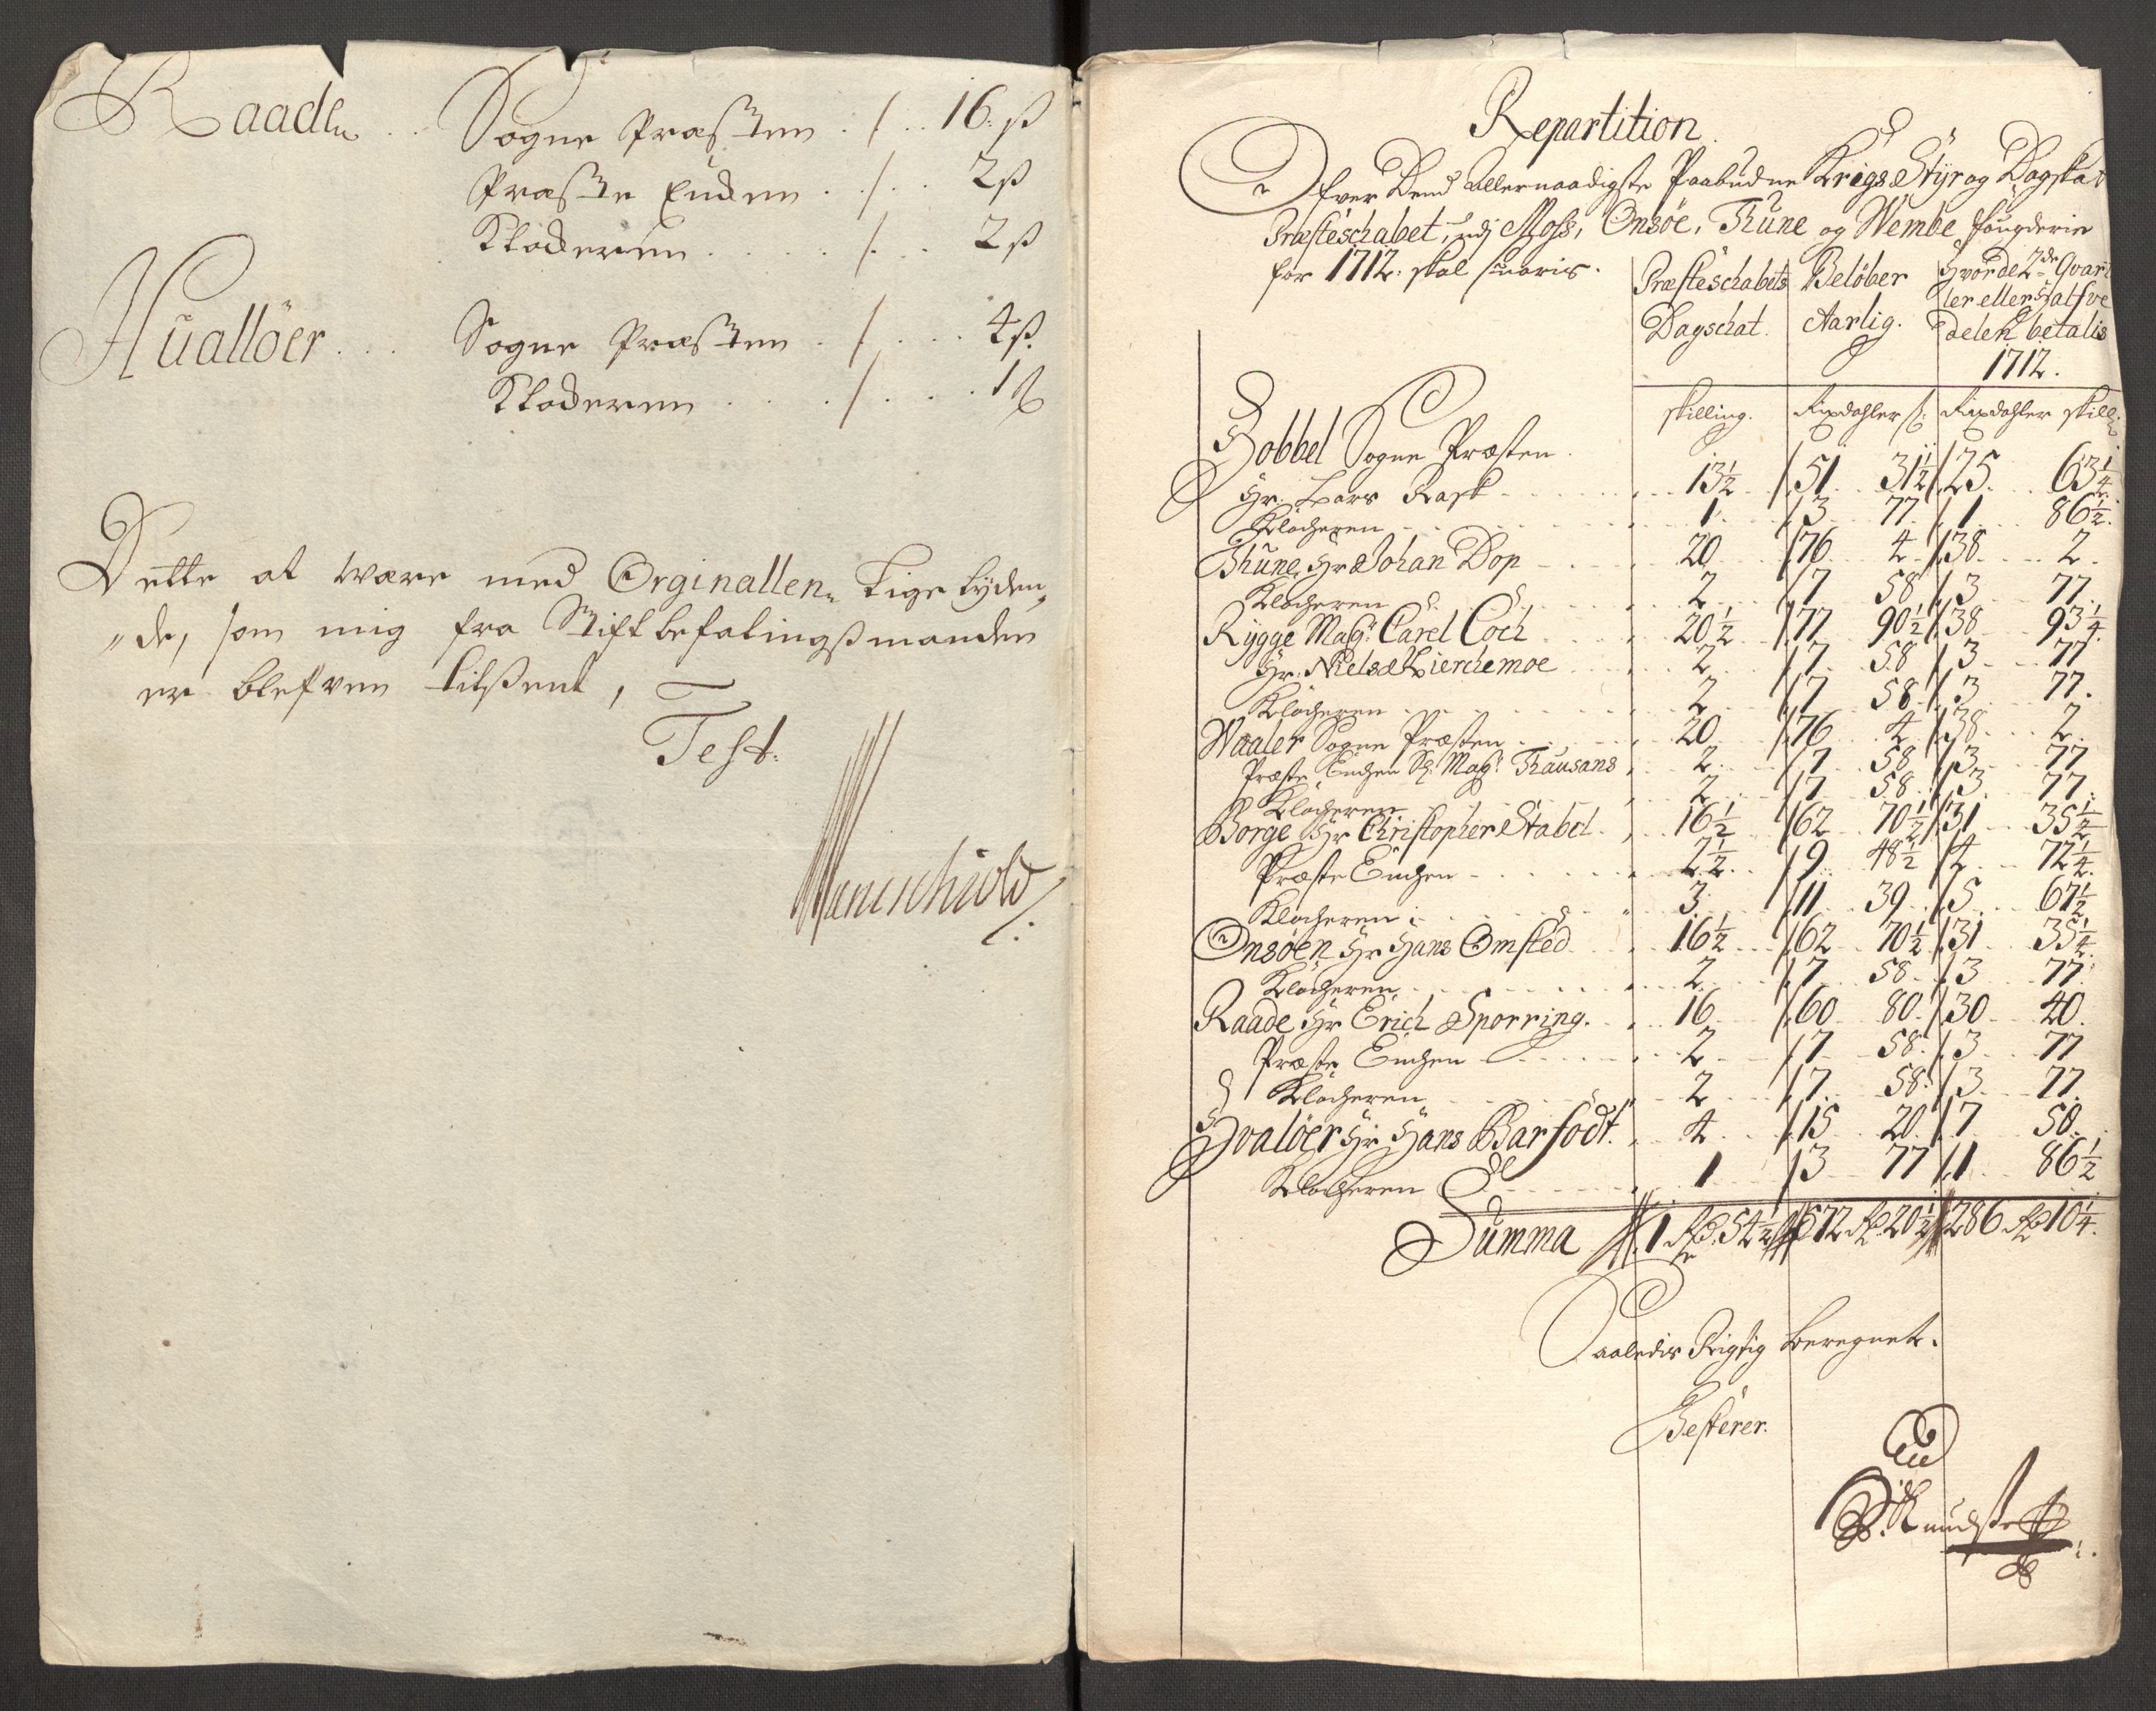 Raade . . Sogne Præsten . / . . 16. ß
Præste Enchen . . / . . 2 ß
Klocheren . . . . / . . 2 ß
Huallöer . . . Sogne Præsten . / . . . 4 ß.
Klocheren . . . . / . . . 1 ß
Dette at være med Orginallen Lige lyden„
„de, som mig fra Stiftbefalingsmanden
er blefven tilsendt,
Test.
Repartition
Ofver Dend allernaadigste Paabudne Krigs Styr og Dagskat
Præsteschabet, udj Moss, Onsöe, Thune og Wembe fougderie
for 1712. skal svaris.
Præsteschabets Dagschat. | Belöber Aarlig. | Hvor de 2de Qvarter eller Halfve delen betalis 1712.
skilling. | Rixdahler ß: | Rixdahler skill:
Hobbel Sogne Præsten
Hr. Lars Rask . . . 13½ / 51 31½ / 25. 63¼
Klocheren . . . 1 / 3 77 / 1 86½.
Thune, Hr Johan Dop . . . 20 / 76 4 / 38 2.
Klocheren . . . 2 / 7 58 / 3 77.
Rygge Magr: Carel Coch . . . 20½ / 77 90½ / 38 93¼
Hr: Niels Kierchemoe . . . 2 / 7 58 / 3 77
Klocheren . . . 2 / 7 58 / 3 77.
Waaler Sogne Præsten . . . 20 / 76 4 / 38 2.
Præste Enchen Sl: Magr: Thausans . 2 / 7 58 / 3 77
Klocheren . . . 2 / 7 58 / 3 77.
Borge Hr Christopher Stabel . . 16½ / 62 70½ / 31 35¼
Præste Enchen . . . 2½ / 9 48½ / 4 72¼
Klocheren . . . 3 / 11 39 / 5 67½
Onsöen, Hr Hans Omsted . . 16½ / 62 70½ / 31 35¼
Klocheren . . . 2 / 7 58 / 3 77
Raade Hr Erich Sporring . . 16 / 60 80 / 30 40.
Præste Enchen . . . 2 / 7 58 / 3 77
Klocheren . . . 2 / 7 58 / 3 77.
Hvalöer Hr Hans Barfodt . . 4 / 15 20 / 7 58.
Klocheren . . . 1 / 3 77 / 1 86½
Summa // 1 Rd 54½ // 572 Rd 20½ // 286 Rd 10¼.
Saaledis Rigtig beregnet.
Testerer.